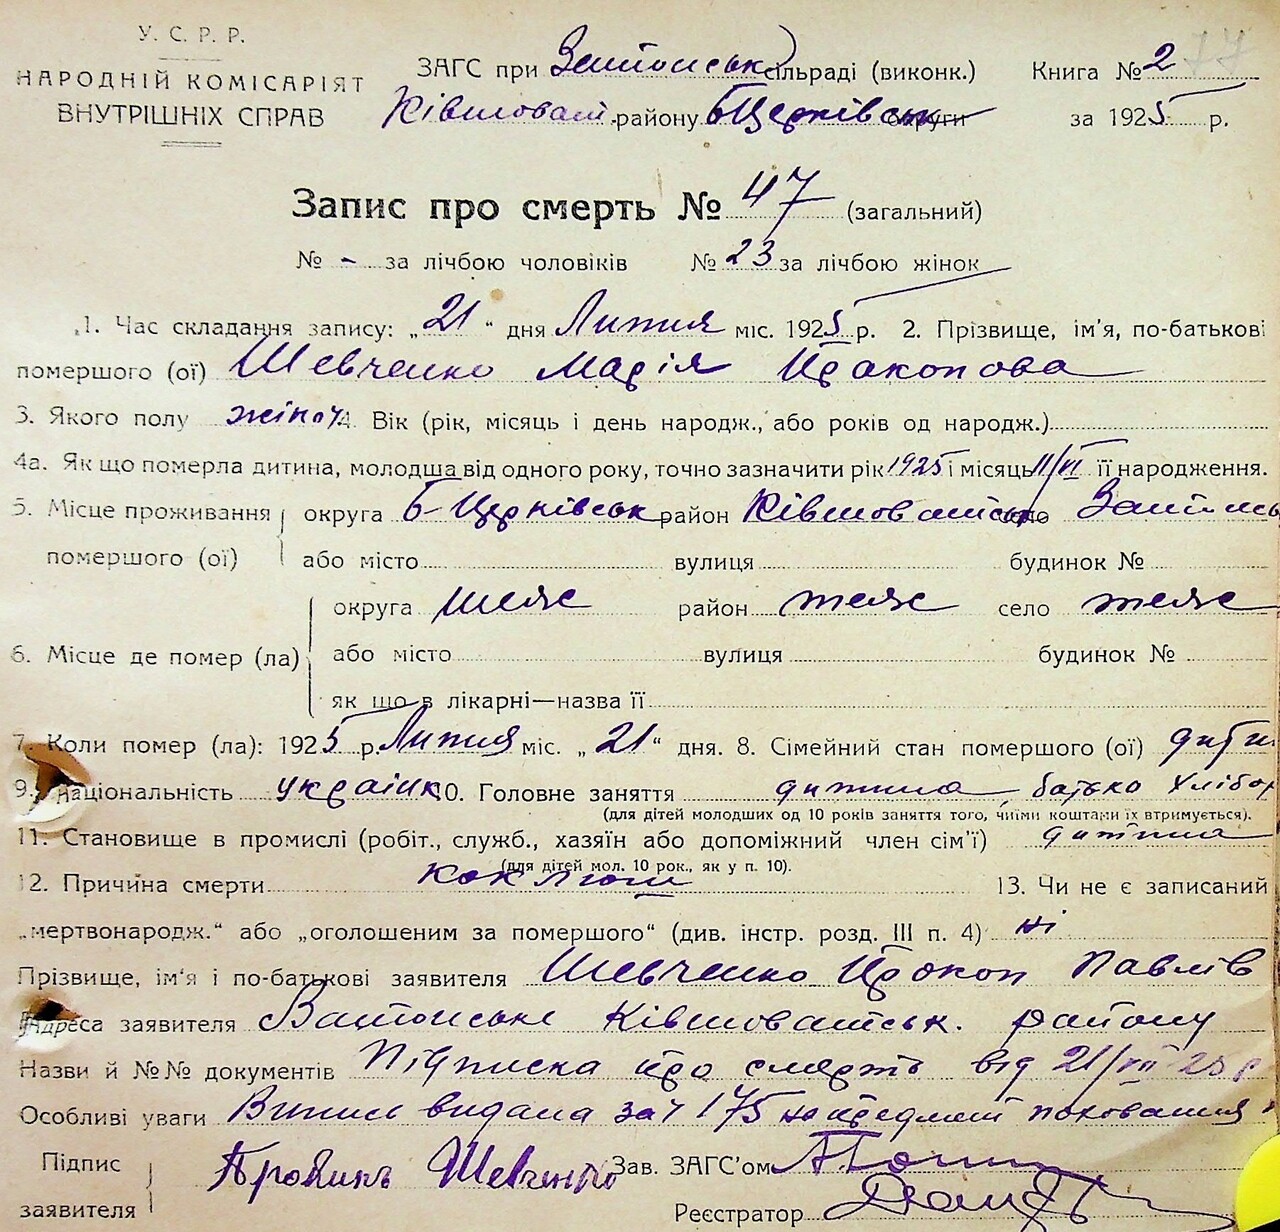 У. С. Р. Р.
НАРОДНІЙ КОМІСАРІЯТ
ВНУТРІШНІХ СПРАВ
ЗАГС при Затонськ сільраді (виконк.) Книга № 2 77
Ківшоват. району Б Церківськ округи за 1925 р.
Запис про смерть № 47 (загальний)
№ - за лічбою чоловіків № 23 за лічбою жінок
1. Час складання запису: „21“ дня Липня міс. 1925 р. 2. Прізвище, ім'я, по-батькові
помершого (ої) Шевченко Марія Пракопова
3. Якого полу жіноч 4. Вік (рік, місяць і день народж., або років од народж.)
4а. Як що померла дитина, молодша від одного року, точно зазначити рік 1925 і місяць 11/VI її народження.
5. Місце проживання помершого (ої) округа Б-Церківськ район Ківшоватськ село Затонсь
або місто вулиця будинок №
6. Місце де помер (ла) округа теж район теж село теж
або місто вулиця будинок №
як що в лікарні—назва її
7. Коли помер (ла): 1925 р. Липня міс. „21“ дня. 8. Сімейний стан помершого (ої) дити
9. Національність україн 10. Головне заняття дитина, батько хлібор
(для дітей молодших од 10 років заняття того, чиїми коштами їх втримується).
11. Становище в промислі (робіт., служб., хазяїн або допоміжний член сім'ї) дитина
(для дітей мол. 10 рок., як у п. 10).
12. Причина смерти коклюш 13. Чи не є записаний
„мертвонародж.“ або „оголошеним за помершого“ (див. інстр. розд. III п. 4) ні
Прізвище, ім'я і по-батькові заявителя Шевченко Прокоп Павлів
Адреса заявителя Затонське Ківшоватськ. району
Назви й №№ документів Підписка про смерть від 21/VII 25 р
Особливі уваги Випис видана за ч 175 на предмет поховання
Підпис заявителя Шевченко Зав. ЗАГС'ом
Реєстратор